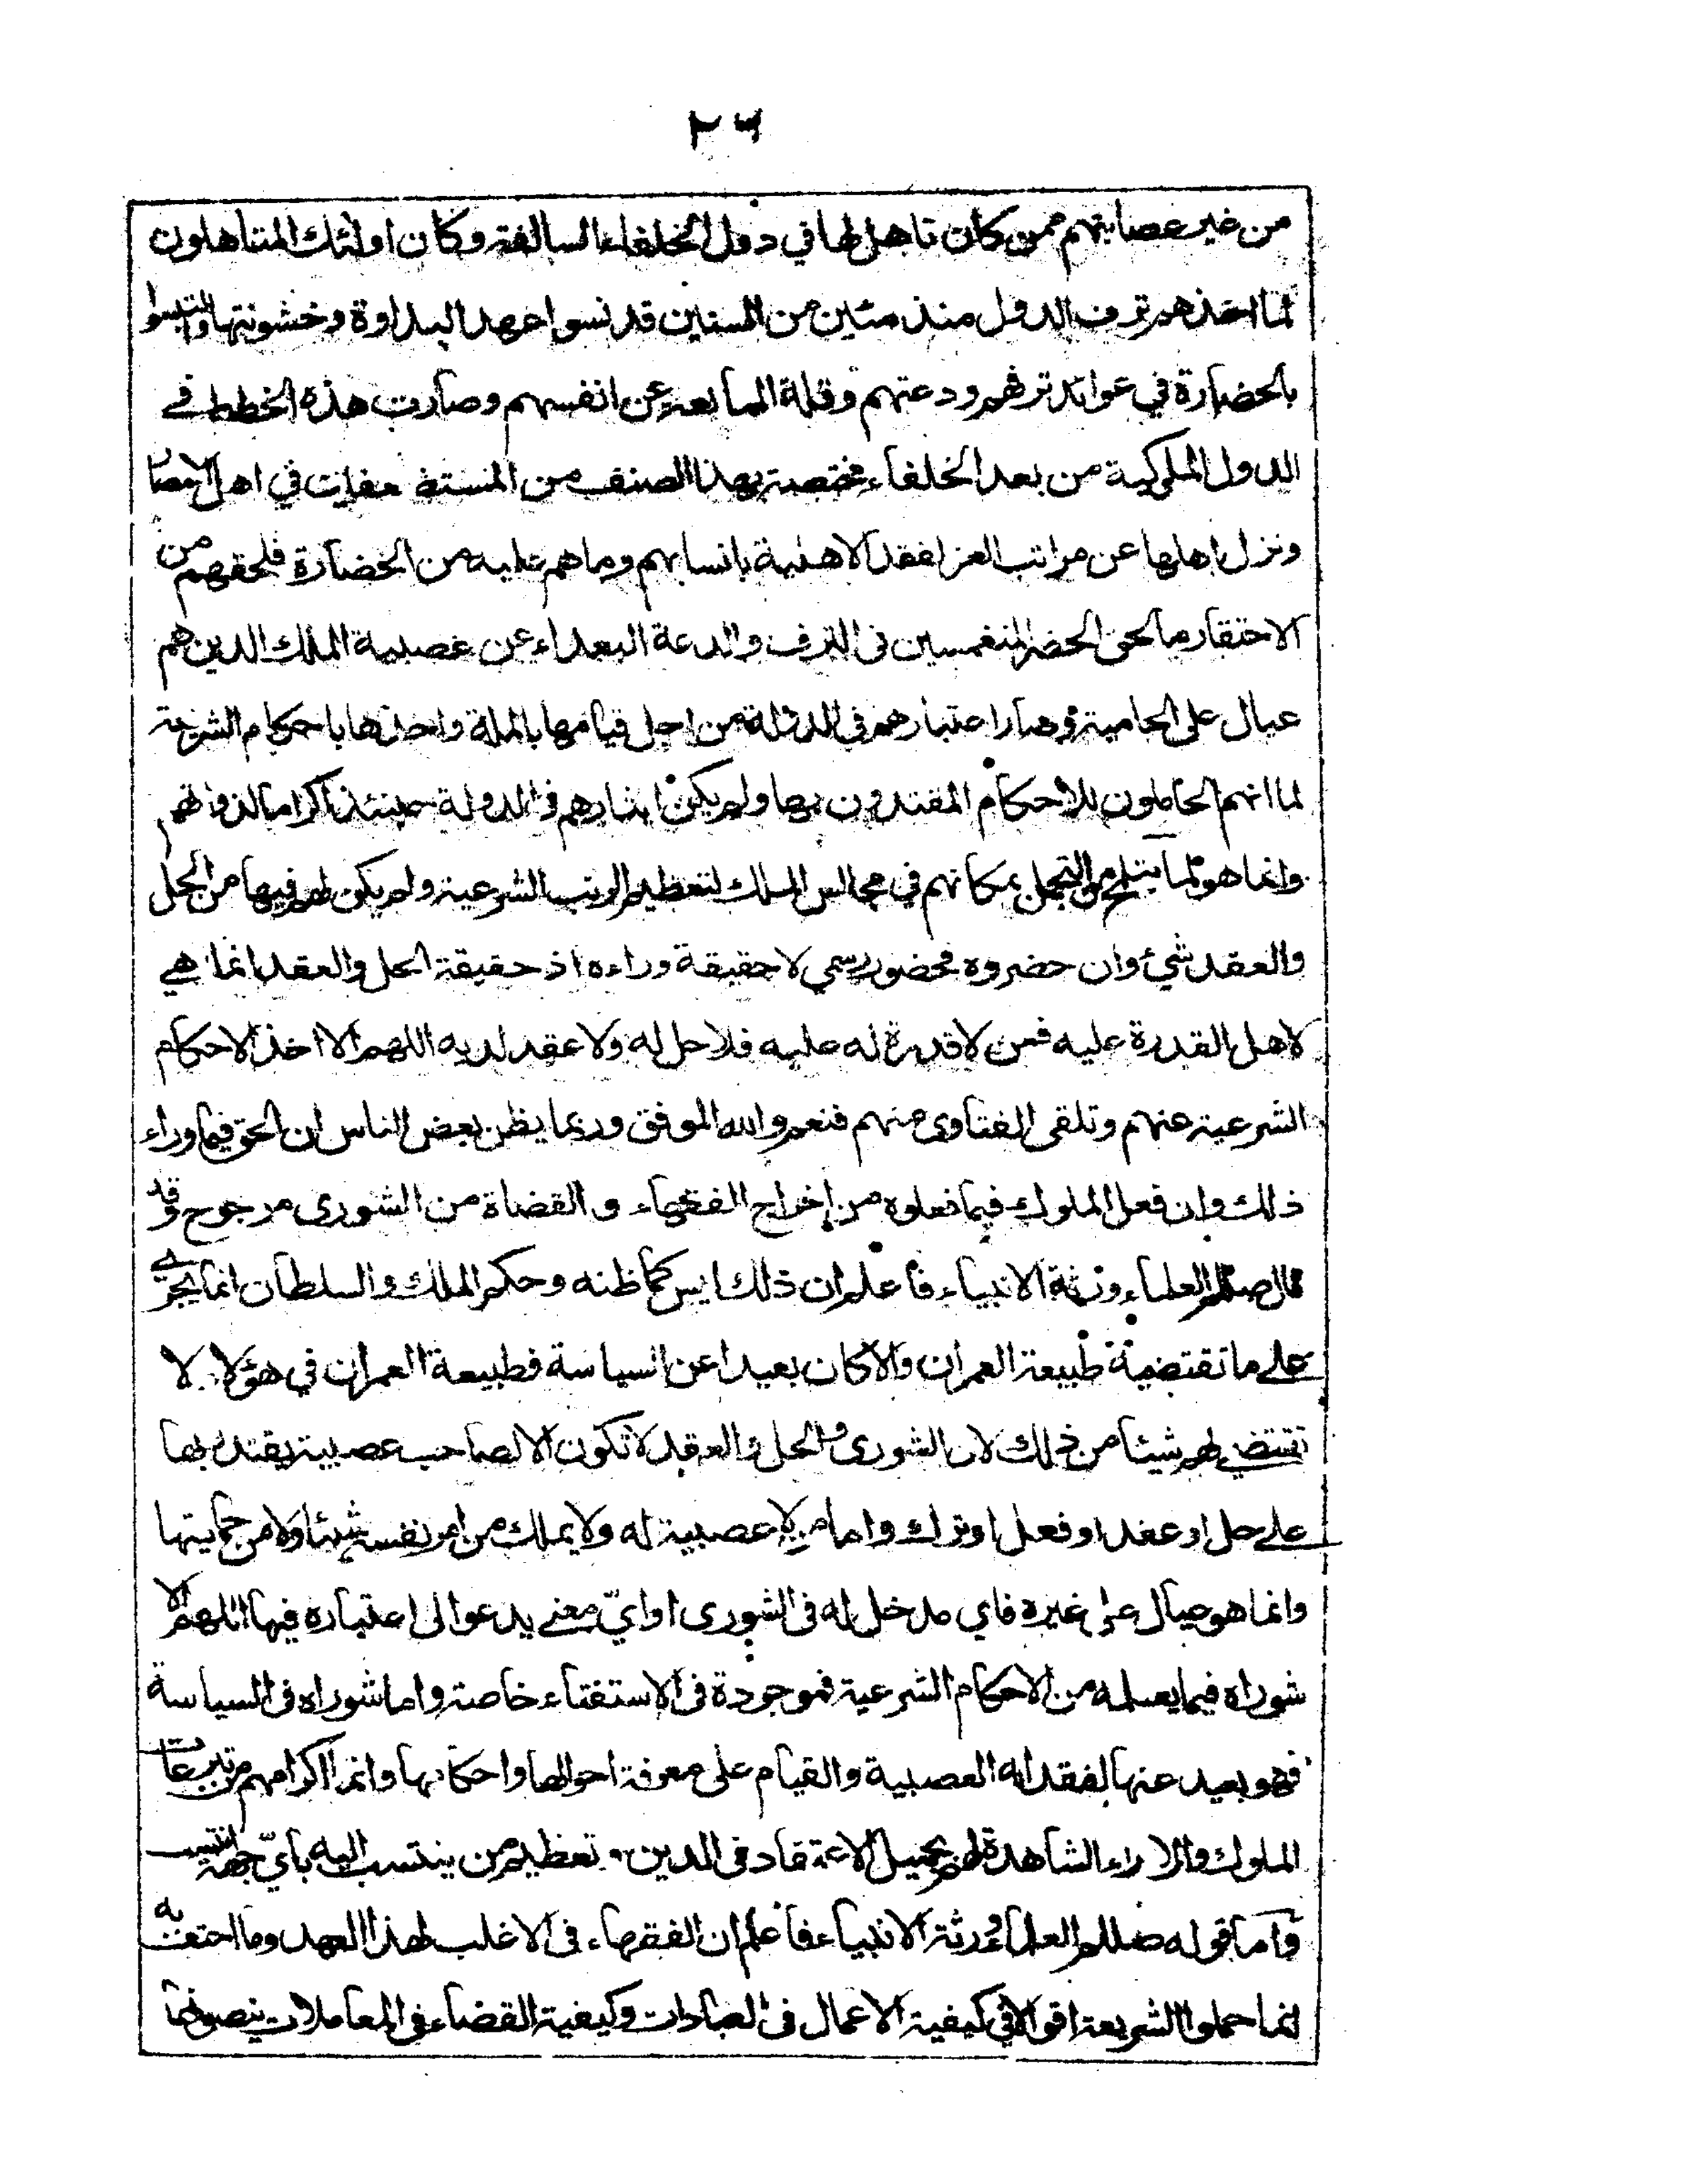 ٢٦
من غير عصابيتهم ممن كان تاهل لها في دول الخلفاء السالفة وكان اولئك المتاهلون
لما اخذهم ترف الدول منذ مئين من السنين قد نسوا عهد البداوة وخشونتها والتبسوا
بالحضارة في عوائد ترفهم ودعتهم وقلة الممانعة عن انفسهم وصارت هذه الخطط في
الدول الملوكية من بعد الخلفاء مختصة بهذا الصنف من المستضعفين في اهل الامصار
ونزل اهلها عن مراتب العز لفقد الاهلية بانسابهم وما هم عليه من الحضارة فلحقهم من
الاحتقار ما لحق الحضر المنغمسين فى الترف والدعة البعداء عن عصبية الملك الذين هم
عيال على الحامية وصار اعتبارهم فى الدولة من اجل قيامها بالملة واخذها باحكام الشريعة
لما انهم الحاملون للاحكام المقتدون بها ولم يكن ايثارهم فى الدولة حينئذ اكراما لذواتهم
وانما هو لما يتلمح من التجمل بمكانهم في مجالس الملك لتعظيم الرتب الشرعية ولم يكن لهم فيها من الحل
والعقد شيء وان حضروه فحضور رسمي لا حقيقة وراءه اذ حقيقة الحل والعقد انما هي
لاهل القدرة عليه فمن لا قدرة له عليه فلا حل له ولا عقد لديه اللهم الا اخذ الاحكام
الشرعية عنهم وتلقى الفتاوى منهم فنعم والله الموفق وربما يظن بعض الناس ان الحق فيما وراء
ذلك وان فعل الملوك فيما فعلوه من اخراج الفقهاء والقضاة من الشورى مرجوح وقد
قال صللم العلماء ورثة الانبياء فاعلم ان ذلك ليس كما ظنه وحكم الملك والسلطان انما يجري
على ما تقتضيه طبيعة العمران والا كان بعيدا عن السياسة فطبيعة العمران في هؤلاء لا
تقتضي لهم شيئا من ذلك لان الشورى والحل والعقد لا تكون الا لصاحب عصبية يقتدر بها
على حل او عقد او فعل او ترك واما من لا عصبية له ولا يملك من امر نفسه شيئا ولا من حمايتها
وانما هو عيال على غيره فاي مدخل له فى الشورى او ايّ معنى يدعو الى اعتباره فيها اللهم الا
شوراه فيما يعلمه من الاحكام الشرعية فموجودة فى الاستفتاء خاصة واما شوراه فى السياسة
فهو بعيد عنها لفقدانه العصبية والقيام على معرفة احوالها واحكامها وانما اكرامهم من تبرعات
الملوك والامراء الشاهدة لهم بجميل الاعتقاد فى الدين وتعظيم من ينتسب اليه بايّ جهة انتسب
واما قوله صللم العلماء ورثة الانبياء فاعلم ان الفقهاء فى الاغلب لهذا العهد وما احتف به
انما حملوا الشريعة اقوالا في كيفية الاعمال فى العبادات وكيفية القضاء فى المعاملات ينصونها